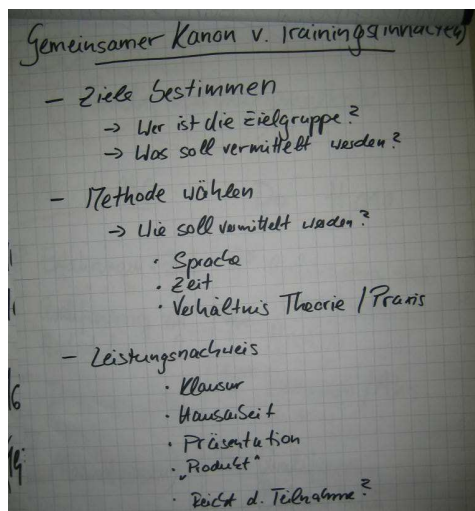 Gemeinsamer Kanon v. Trainingsinhalten
- Ziele bestimmen
→ Wer ist die Zielgruppe?
→ Was soll vermittelt werden?
- Methode wählen
→ Wie soll vermittelt werden?
· Sprache
· Zeit
· Verhältnis Theorie / Praxis
- Leistungsnachweis
· Klausur
· Hausarbeit
· Präsentation
· „Produkt“
· Reicht d. Teilnahme?